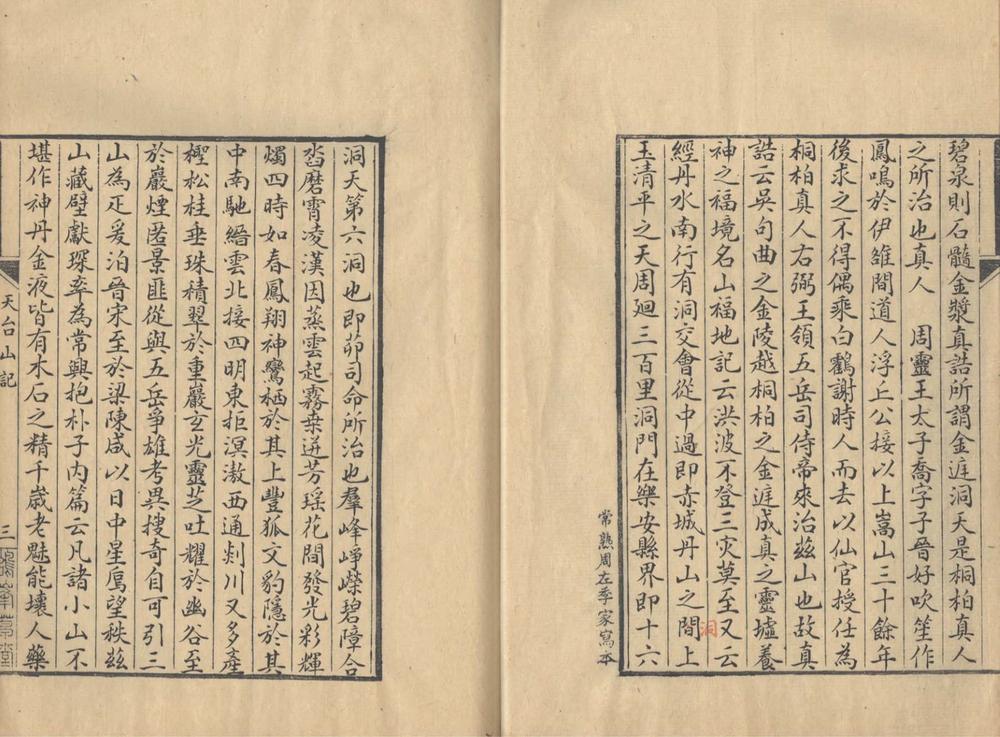 碧泉則石髓金漿真誥所謂金庭洞天是桐柏真人
之所治也真人　周靈王太子喬字子晉好吹笙作
鳳鳴於伊雒間道人浮丘公接以上嵩山三十餘年
後求之不得偶乘白鶴謝時人而去以仙官授任為
桐柏真人右弼王領五岳司侍帝來治茲山也故真
誥云吳句曲之金陵越桐柏之金庭成真之靈墟養
神之福境名山福地記云洪波不登三灾莫至又云
經丹水南行有洞交會從中過即赤城丹山之間上
洞
玉清平之天周廻三百里洞門在樂安縣界即十六
常熟周左季家寫本
洞天第六洞也即茆司命所治也羣峰崢嶸碧障合
沓磨霄凌漢因蒸雲起霧桒迸芳瑶花間發光彩輝
燭四時如春鳳翔神鸞栖於其上豐狐文豹隱於其
中南馳縉雲北接四明東拒溟渤西通剡川又多產
檉松桂垂珠積翠於重巖玄光靈芝吐耀於幽谷至
於巖煙匿景匪從與五岳爭雄考異搜奇自可引三
山為疋爰洎晉宋至於梁陳咸以日中星鳥望秩茲
山藏壁獻琛率為常興抱朴子内篇云凡諸小山不
堪作神丹金液皆有木石之精千歲老魅能壞人藥
天台山記
三